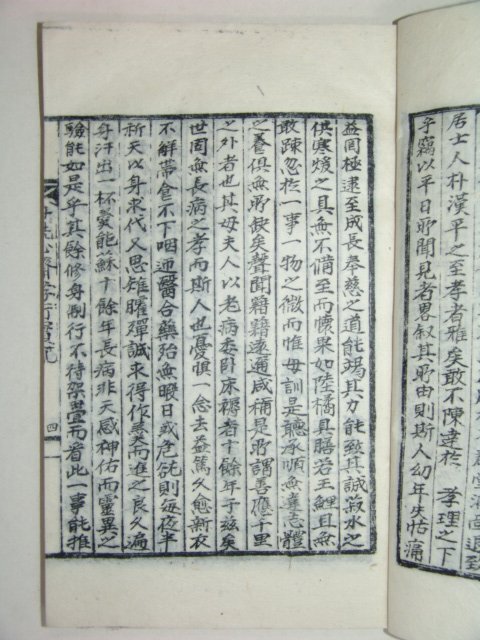 居士人朴漢平之至孝者雅矣敢不陳達於 孝理之下
乎竊以平日所聞見者略叙其所由則斯人幼年失怙痛
益罔極逮至成長奉慈之道能竭其力能致其誠菽水之
供寒煖之具無不備至而懷果如陸橘具膳若王鯉且無
敢踈忽於一事一物之微而惟母訓是聽承順無違志體
之養俱無所缺矣聲聞籍籍遠邇咸稱是所謂善應千里
之外者也其母夫人以老病委臥床褥者十餘年于玆矣
世固無長病之孝而斯人也憂惧一念去益篤久愈新衣
不解帶食不下咽迎醫合藥殆無暇日或危㞃則每夜半
祈天以身求代又思雉臛殫誠求得作羹而進之良久遍
身汗出一杯羹能蘇十餘年長病非天感神佑而靈異之
驗能如是乎其餘修身制行不待架疊而看此一事能推
四